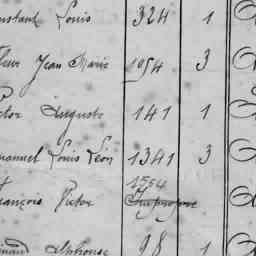 nstant Louis 324 1
leur Jean Marie 1054 3
ctor Auguste 141 1
manuel Louis Léon 1341 3
1554
rançois Victor Impropre
Alphonse 98 1